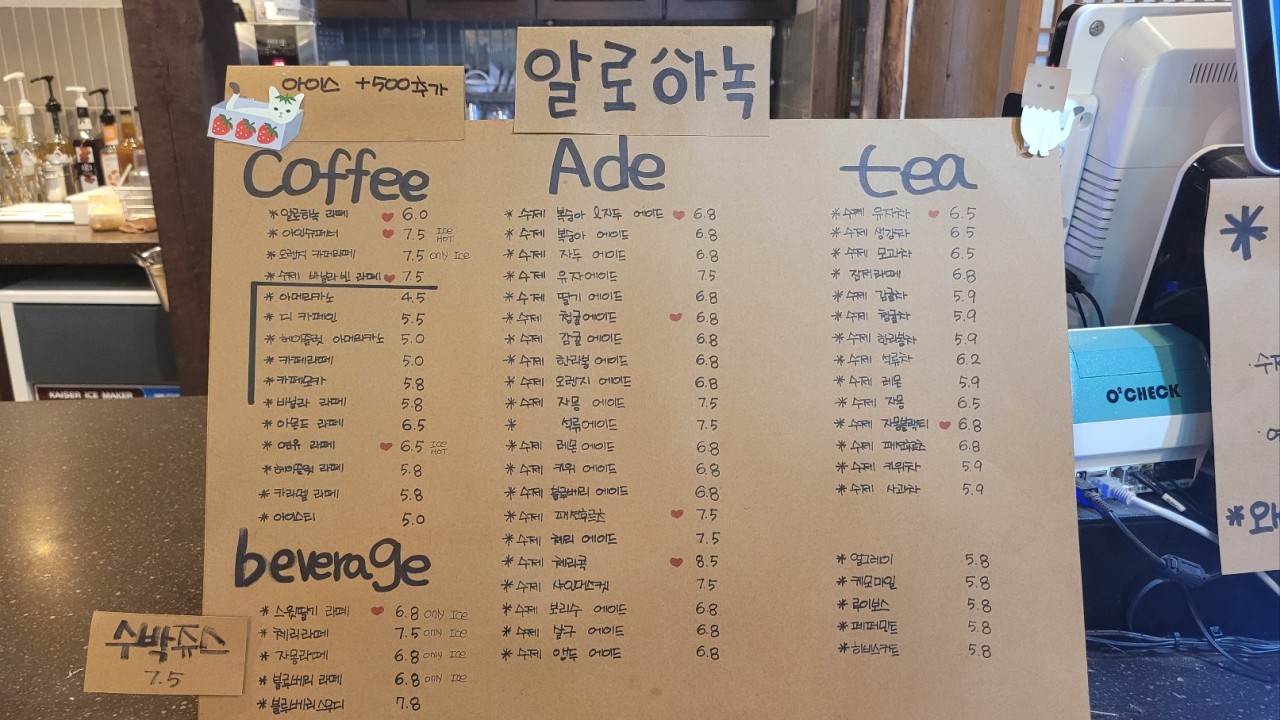 아이스 +500추가
알로하녹
Coffee
*알로하녹 라떼 6.0
*아인슈페너 7.5 ICE HOT
*오렌지 카페라떼 7.5 only Ice
*수제 바닐라빈 라떼 7.5
*아메리카노 4.5
*디 카페인 5.5
*헤이즐넛 아메리카노 5.0
*카페라떼 5.0
*카페모카 5.8
*바닐라 라떼 5.8
*아몬드 라떼 6.5
*연유 라떼 6.5 ICE HOT
*헤이즐넛 라떼 5.8
*카라멜 라떼 5.8
*아이스티 5.0
beverage
*스윗딸기 라떼 6.8 only Ice
*체리라떼 7.5 only Ice
*자몽라떼 6.8 only Ice
*블루베리 라떼 6.8 only Ice
*블루베리스무디 7.8
수박쥬스
7.5
Ade
*수제 복숭아 &자두 에이드 6.8
*수제 복숭아 에이드 6.8
*수제 자두 에이드 6.8
*수제 유자에이드 7.5
*수제 딸기 에이드 6.8
*수제 청귤에이드 6.8
*수제 감귤 에이드 6.8
*수제 한라봉 에이드 6.8
*수제 오렌지 에이드 6.8
*수제 자몽 에이드 7.5
* 석류에이드 7.5
*수제 레몬 에이드 6.8
*수제 키위 에이드 6.8
*수제 블루베리 에이드 6.8
*수제 패션후르츠 7.5
*수제 체리 에이드 7.5
*수제 체리콕 8.5
*수제 샤인머스켓 7.5
*수제 보리수 에이드 6.8
*수제 살구 에이드 6.8
*수제 앵두 에이드 6.8
tea
*수제 유자차 6.5
*수제 생강차 6.5
*수제 모과차 6.5
* 잠퍼라떼 6.8
*수제 감귤차 5.9
*수제 청귤차 5.9
*수제 한라봉차 5.9
*수제 석류차 6.2
*수제 레몬 5.9
*수제 자몽 6.5
*수제 자몽블랙티 6.8
*수제 패션후르츠 6.8
*수제 키위차 5.9
*수제 사과차 5.9
*얼그레이 5.8
*케모마일 5.8
*루이보스 5.8
*페퍼민트 5.8
*히비스커스 5.8
KAISER ICE MAKER
O²CHECK